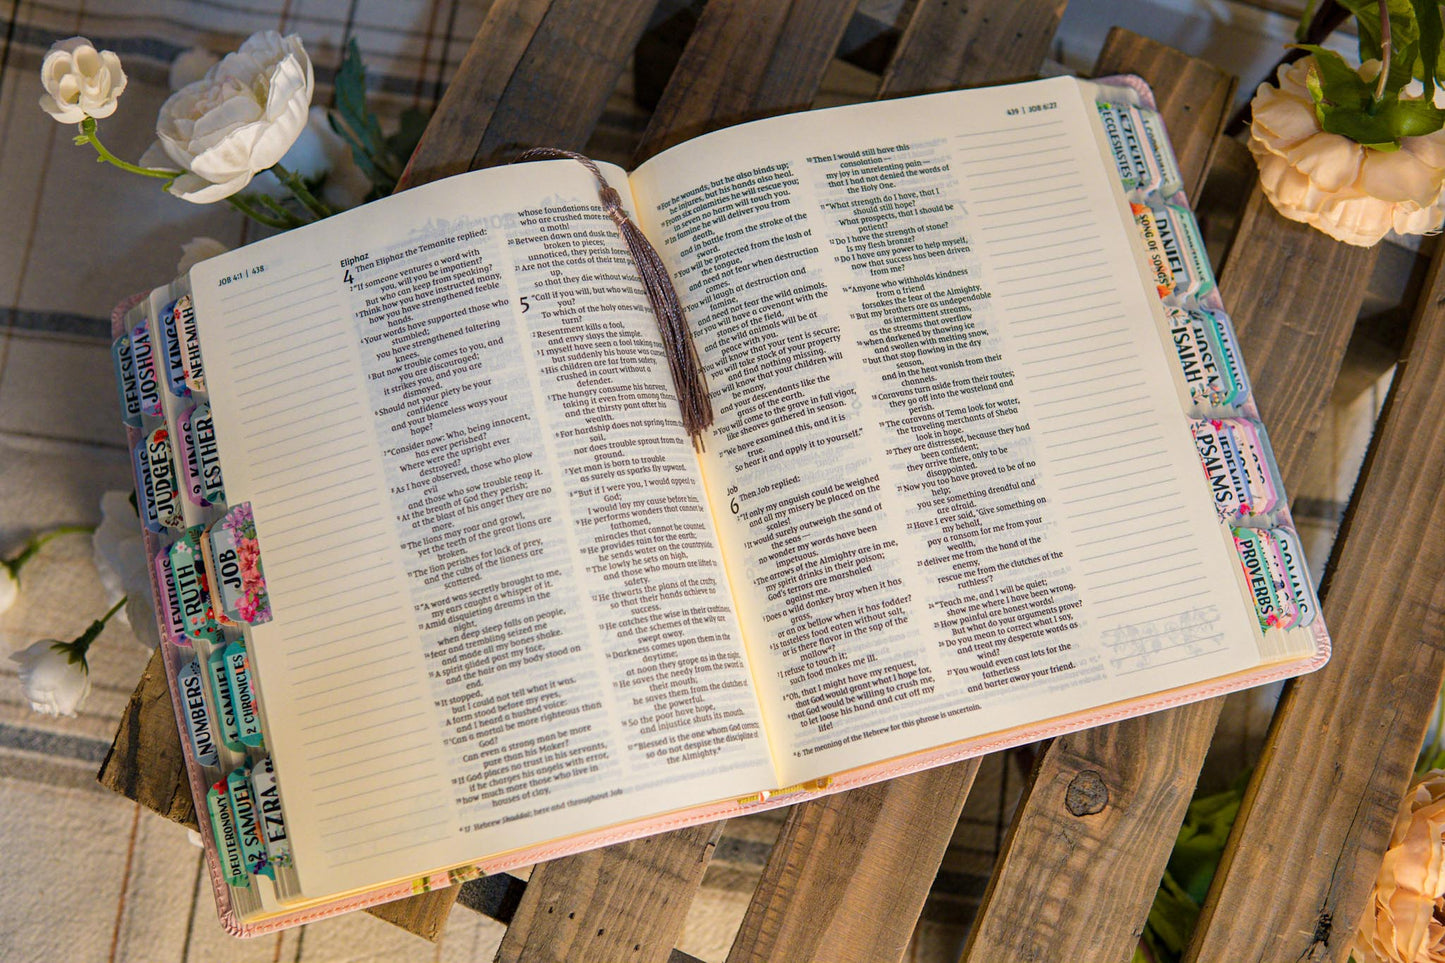 JOB 4:1 | 438
Eliphaz
4 Then Eliphaz the Temanite replied:
2 "If someone ventures a word with
you, will you be impatient?
But who can keep from speaking?
3 Think how you have instructed many,
how you have strengthened feeble
hands.
4 Your words have supported those who
stumbled;
you have strengthened faltering
knees.
5 But now trouble comes to you, and
you are discouraged;
it strikes you, and you are
dismayed.
6 Should not your piety be your
confidence
and your blameless ways your
hope?
7 "Consider now: Who, being innocent,
has ever perished?
Where were the upright ever
destroyed?
8 As I have observed, those who plow
evil
and those who sow trouble reap it.
9 At the breath of God they perish;
at the blast of his anger they are no
more.
10 The lions may roar and growl,
yet the teeth of the great lions are
broken.
11 The lion perishes for lack of prey,
and the cubs of the lioness are
scattered.
12 "A word was secretly brought to me,
my ears caught a whisper of it.
13 Amid disquieting dreams in the
night,
when deep sleep falls on people,
14 fear and trembling seized me
and made all my bones shake.
15 A spirit glided past my face,
and the hair on my body stood on
end.
16 It stopped,
but I could not tell what it was.
A form stood before my eyes,
and I heard a hushed voice:
17 'Can a mortal be more righteous than
God?
Can even a strong man be more
pure than his Maker?
18 If God places no trust in his servants,
if he charges his angels with error,
19 how much more those who live in
houses of clay,
whose foundations are
who are crushed more
a moth!
20 Between dawn and dusk they
broken to pieces;
unnoticed, they perish forever
21 Are not the cords of their tent
up,
so that they die without wisdom
5 "Call if you will, but who will
you?
To which of the holy ones will
turn?
2 Resentment kills a fool,
and envy slays the simple.
3 I myself have seen a fool taking
but suddenly his house was cursed
4 His children are far from safety,
crushed in court without a
defender.
5 The hungry consume his harvest,
taking it even from among thorns
and the thirsty pant after his
wealth.
6 For hardship does not spring from
soil,
nor does trouble sprout from the
ground.
7 Yet man is born to trouble
as surely as sparks fly upward.
8 "But if I were you, I would appeal to
God;
I would lay my cause before him.
9 He performs wonders that cannot be
fathomed,
miracles that cannot be counted.
10 He provides rain for the earth;
he sends water on the countryside.
11 The lowly he sets on high,
and those who mourn are lifted to
safety.
12 He thwarts the plans of the crafty,
so that their hands achieve no
success.
13 He catches the wise in their craftiness,
and the schemes of the wily are
swept away.
14 Darkness comes upon them in the
daytime;
at noon they grope as in the night.
15 He saves the needy from the sword in
their mouth;
he saves them from the clutches of
the powerful.
16 So the poor have hope,
and injustice shuts its mouth.
17 "Blessed is the one whom God corrects;
so do not despise the discipline of
the Almighty.a
a 17 Hebrew Shaddai; here and throughout Job
439 | JOB 6:27
18 For he wounds, but he also binds up;
he injures, but his hands also heal.
19 From six calamities he will rescue you;
in seven no harm will touch you.
20 In famine he will deliver you from
death,
and in battle from the stroke of the
sword.
21 You will be protected from the lash of
the tongue,
and need not fear when destruction
comes.
22 You will laugh at destruction and
famine,
and need not fear the wild animals.
23 For you will have a covenant with the
stones of the field,
and the wild animals will be at
peace with you.
24 You will know that your tent is secure;
you will take stock of your property
and find nothing missing.
25 You will know that your children will
be many,
and your descendants like the
grass of the earth.
26 You will come to the grave in full vigor,
like sheaves gathered in season.
27 "We have examined this, and it is
true.
So hear it and apply it to yourself."
Job
6 Then Job replied:
2 "If only my anguish could be weighed
and all my misery be placed on the
scales!
3 It would surely outweigh the sand of
the seas —
no wonder my words have been
impetuous.
4 The arrows of the Almighty are in me,
my spirit drinks in their poison;
God's terrors are marshaled
against me.
5 Does a wild donkey bray when it has
grass,
or an ox bellow when it has fodder?
6 Is tasteless food eaten without salt,
or is there flavor in the sap of the
mallow a?
7 I refuse to touch it;
such food makes me ill.
8 "Oh, that I might have my request,
that God would grant what I hope for,
9 that God would be willing to crush me,
to let loose his hand and cut off my
life!
10 Then I would still have this
consolation —
my joy in unrelenting pain —
that I had not denied the words of
the Holy One.
11 "What strength do I have, that I
should still hope?
What prospects, that I should be
patient?
12 Do I have the strength of stone?
Is my flesh bronze?
13 Do I have any power to help myself,
now that success has been driven
from me?
14 "Anyone who withholds kindness
from a friend
forsakes the fear of the Almighty.
15 But my brothers are as undependable
as intermittent streams,
as the streams that overflow
16 when darkened by thawing ice
and swollen with melting snow,
17 but that stop flowing in the dry
season,
and in the heat vanish from their
channels.
18 Caravans turn aside from their routes;
they go off into the wasteland and
perish.
19 The caravans of Tema look for water,
the traveling merchants of Sheba
look in hope.
20 They are distressed, because they had
been confident;
they arrive there, only to be
disappointed.
21 Now you too have proved to be of no
help;
you see something dreadful and
are afraid.
22 Have I ever said, 'Give something on
my behalf,
pay a ransom for me from your
wealth,
23 deliver me from the hand of the
enemy,
rescue me from the clutches of the
ruthless'?
24 "Teach me, and I will be quiet;
show me where I have been wrong.
25 How painful are honest words!
But what do your arguments prove?
26 Do you mean to correct what I say,
and treat my desperate words as
wind?
27 You would even cast lots for the
fatherless
and barter away your friend.
a 6 The meaning of the Hebrew for this phrase is uncertain.
GENESIS
JOSHUA
1 KINGS
NEHEMIAH
EXODUS
JUDGES
2 KINGS
ESTHER
LEVITICUS
RUTH
JOB
NUMBERS
1 SAMUEL
2 CHRONICLES
DEUTERONOMY
2 SAMUEL
EZRA
ECCLESIASTES
EZEKIEL
SONG OF SONGS
DANIEL
ISAIAH
HOSEA
PSALMS
JEREMIAH
JOEL
PROVERBS
ROMANS